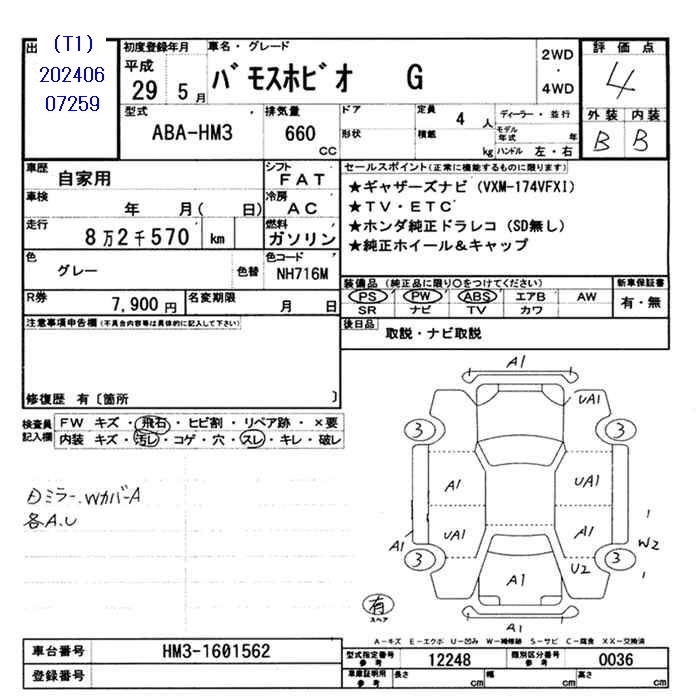 出
(T1)
202406
07259
初度登録年月
平成
29 5月
車名・グレード
バモスホビオ G
2WD
・
4WD
評価点
4
外装 内装
B B
型式
ABA-HM3
排気量
660
CC
ドア
形状
定員
4 人
積載
kg
ディーラー・並行
モデル年式 年
ハンドル 左・右
車歴
自家用
シフト
FAT
車検
年 月( 日)
冷房
AC
走行
8万2千570 km
燃料
ガソリン
色
グレー
色替
色コード
NH716M
R券
7,900円
名変期限
月 日
セールスポイント(正常に機能するものに限る)
★ギャザーズナビ (VXM-174VFXI)
★TV・ETC
★ホンダ純正ドラレコ (SD無し)
★純正ホイール&キャップ
装備品 (純正品に限り○をつけてください)
新車保証書
PS PW ABS エアB AW
SR ナビ TV カワ
有・無
後日品
取説・ナビ取説
注意事項申告欄(不具合内容等は具体的に記入して下さい)
修復歴 有〔箇所 〕
検査員
記入欄
FW キズ・飛石・ヒビ割・リペア跡・×要
内装 キズ・汚レ・コゲ・穴・スレ・キレ・破レ
ミラー.Wカバー A
各A.U
A1
UA1
3
3
A1
UA1
UA1
A1
A1
W2
3
3
U2
A1
有
スペア
A1
A-キズ E-エクボ U-凹み W-補修跡 S-サビ C-腐食 XX-交換済
車台番号
HM3-1601562
登録番号
型式指定番号
参考
12248
類別区分番号
参考
0036
車庫証明用
参考
長さ cm
幅 cm
高さ cm